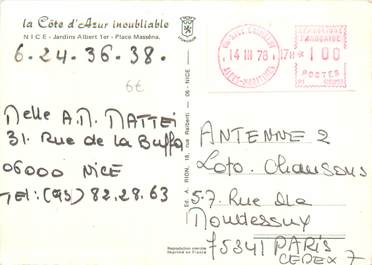 la Côte d'Azur inoubliable
NICE - Jardins Albert 1er - Place Masséna.
6.24.36.38.
6€
Melle A.M. MATTEI
31. Rue de la Buffa
06000 NICE
Tel: (93) 82.28.63
Ed. A. RION, 18, rue Raiberti — 06 - NICE —
14 III 78
17H
ALPES-MARITIMES
REPUBLIQUE
FRANCAISE
1 00
POSTES
ANTENNE 2
Loto. Chansons
57. Rue de
Montessuy
75341 PARIS
CEDEX 7
Reproduction interdite
Imprimé en France